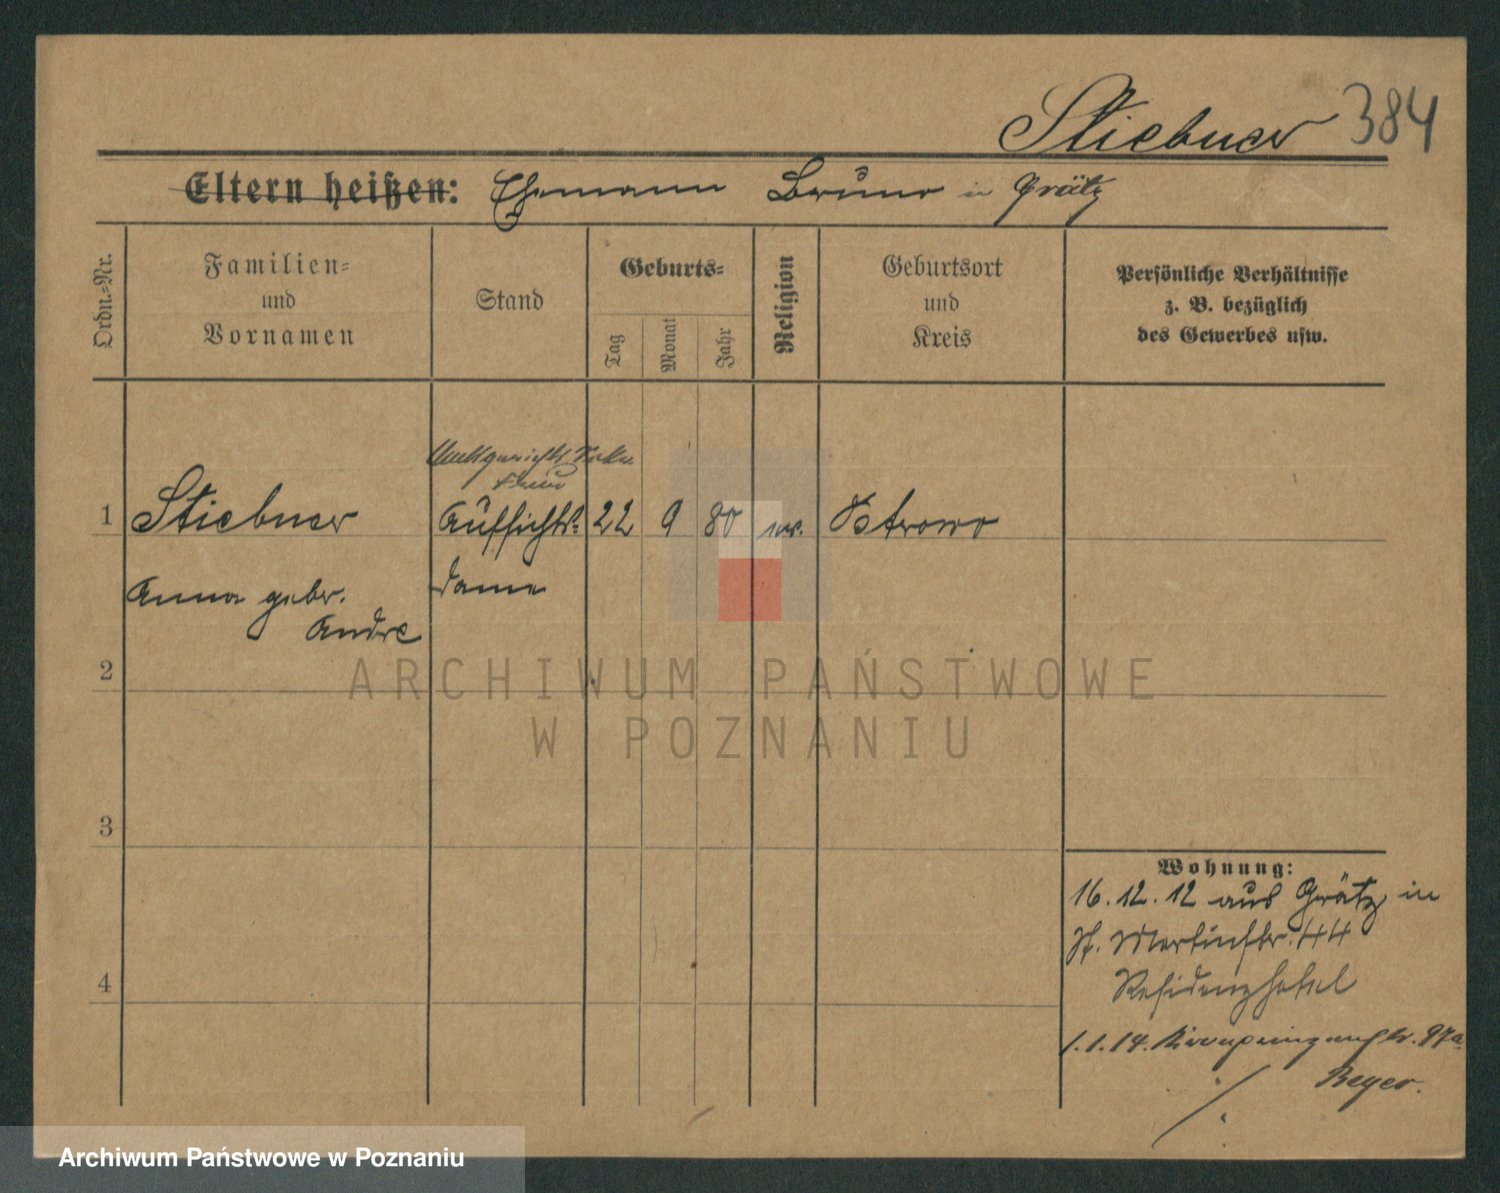 Stiebner 384
Eltern heißen: Ehemann Bruno in Grätz
Ordn.=Nr.
Familien=
und
Vornamen
Stand
Geburts=
Tag
Monat
Jahr
Religion
Geburtsort
und
Kreis
Persönliche Verhältnisse
z. B. bezüglich
des Gewerbes usw.
Amtsgerichts
1 Stiebner Aufsichts= 22 9 80 Ostrowo
Anna gebr. dame
Andre
2
ARCHIWUM PAŃSTWOWE
W POZNANIU
3
Wohnung:
16.12.12 aus Grätz in
St. Martinstr. 44
4
Residenzhotel
1.1.14. Kronprinzenstr. 97a
Beyer.
Archiwum Państwowe w Poznaniu